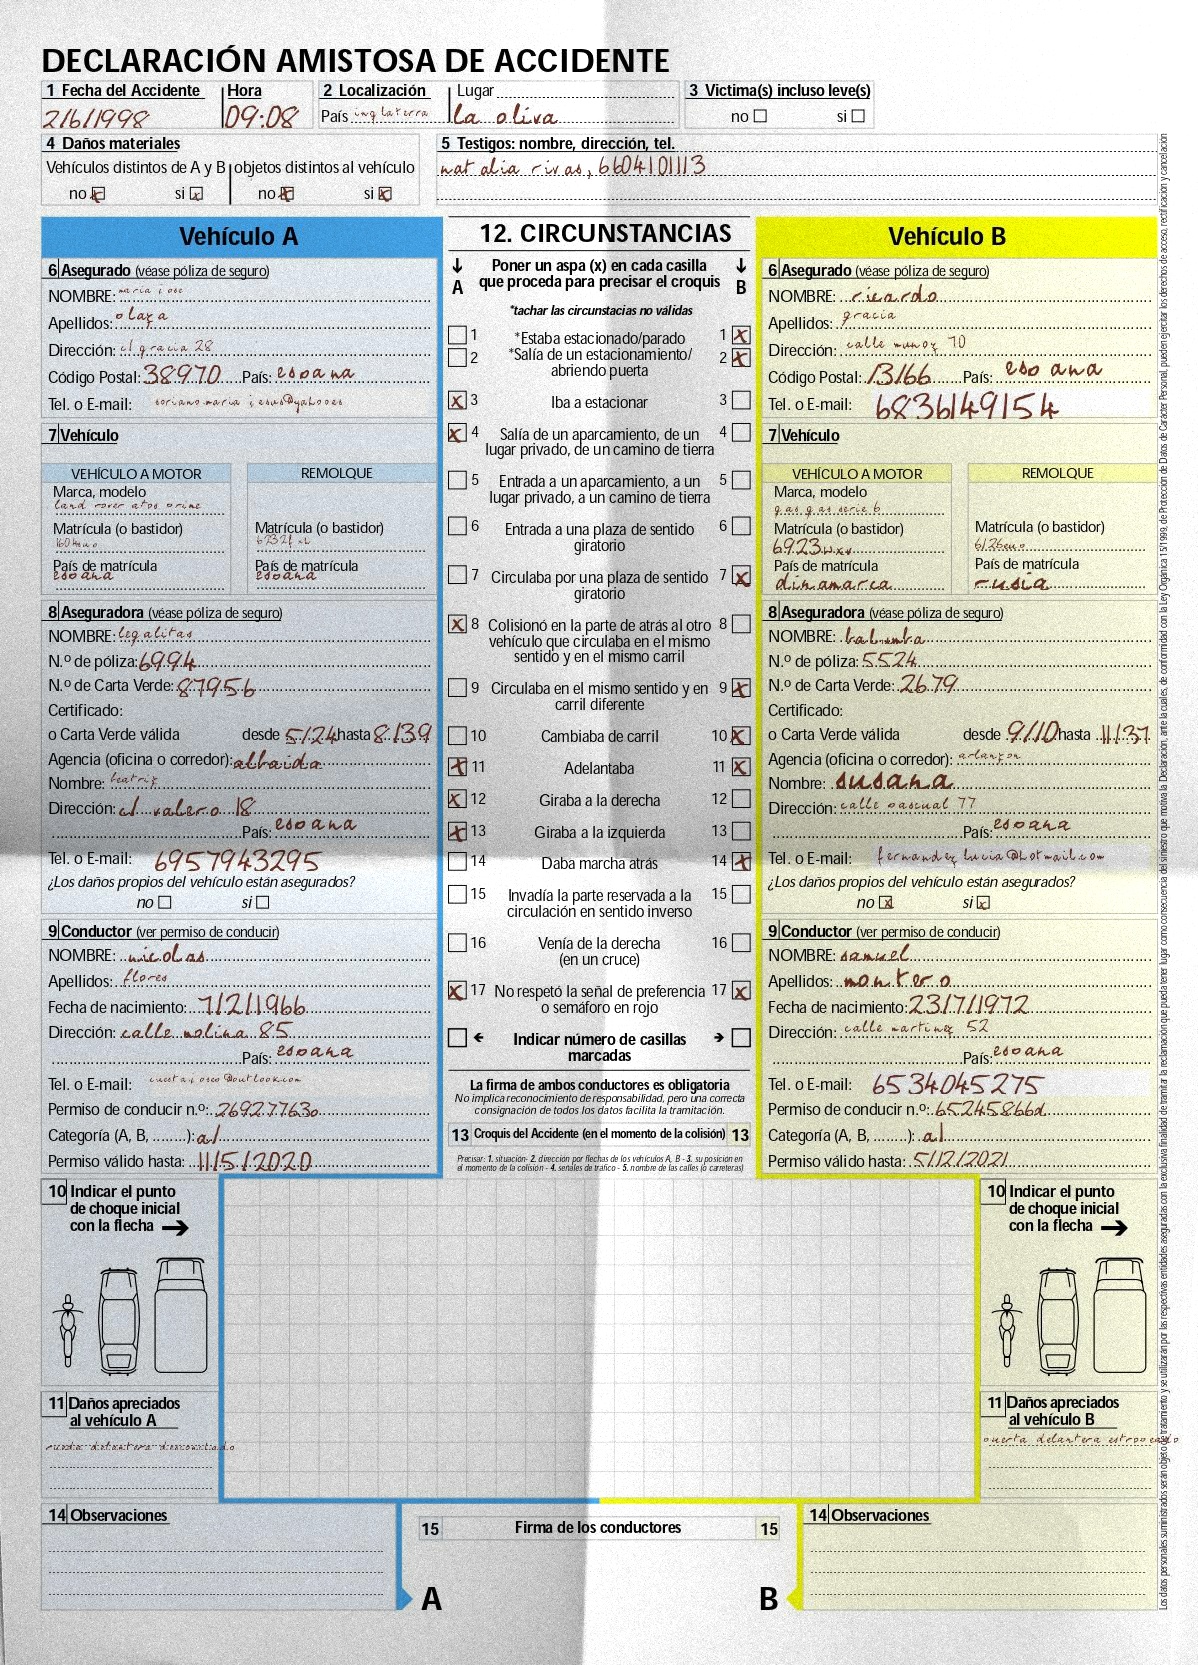 DECLARACIÓN AMISTOSA DE ACCIDENTE
1 Fecha del Accidente Hora 2 Localización Lugar 3 Victima(s) incluso leve(s)
2/6/1998 09:08 País inglaterra la oliva no si
4 Daños materiales 5 Testigos: nombre, dirección, tel.
Vehículos distintos de A y B objetos distintos al vehículo natalia rivas, 6604101113
no x si x no x si x
Vehículo A
6 Asegurado (véase póliza de seguro)
NOMBRE: maria jose
Apellidos: olaya
Dirección: cl gracia 28
Código Postal: 38970 País: espana
Tel. o E-mail: sorianomaria jesus@yahooes
7 Vehículo
VEHÍCULO A MOTOR REMOLQUE
Marca, modelo
land rover
Matrícula (o bastidor) Matrícula (o bastidor)
País de matrícula País de matrícula
espana espana
8 Aseguradora (véase póliza de seguro)
NOMBRE: legalitas
N.º de póliza: 6994
N.º de Carta Verde: 87956
Certificado:
o Carta Verde válida desde 5/24 hasta 8/39
Agencia (oficina o corredor): albaida
Nombre: beatriz
Dirección: cl valero 18
País: espana
Tel. o E-mail: 6957943295
¿Los daños propios del vehículo están asegurados?
no si
9 Conductor (ver permiso de conducir)
NOMBRE: nicolas
Apellidos: flores
Fecha de nacimiento: 7/2/1966
Dirección: calle molina 85
País: espana
Tel. o E-mail: cuestajose@outlookcom
Permiso de conducir n.º: 26927763o
Categoría (A, B, ........): a1
Permiso válido hasta: 11/5/2020
12. CIRCUNSTANCIAS
A Poner un aspa (x) en cada casilla que proceda para precisar el croquis B
*tachar las circunstacias no válidas
1 *Estaba estacionado/parado 1 x
2 *Salía de un estacionamiento/ 2 x
abriendo puerta
x 3 Iba a estacionar 3
x 4 Salía de un aparcamiento, de un 4
lugar privado, de un camino de tierra
5 Entrada a un aparcamiento, a un 5
lugar privado, a un camino de tierra
6 Entrada a una plaza de sentido 6
giratorio
7 Circulaba por una plaza de sentido 7 x
giratorio
x 8 Colisionó en la parte de atrás al otro 8
vehículo que circulaba en el mismo
sentido y en el mismo carril
9 Circulaba en el mismo sentido y en 9 x
carril diferente
10 Cambiaba de carril 10 x
x 11 Adelantaba 11 x
x 12 Giraba a la derecha 12
x 13 Giraba a la izquierda 13
14 Daba marcha atrás 14 x
15 Invadía la parte reservada a la 15
circulación en sentido inverso
16 Venía de la derecha 16
(en un cruce)
x 17 No respetó la señal de preferencia 17 x
o semáforo en rojo
Indicar número de casillas
marcadas
La firma de ambos conductores es obligatoria
No implica reconocimiento de responsabilidad, pero una correcta
consignación de todos los datos facilita la tramitación.
13 Croquis del Accidente (en el momento de la colisión) 13
Precisar: 1. situación- 2. dirección por flechas de los vehículos A, B - 3. su posición en
el momento de la colisión - 4. señales de tráfico - 5. nombre de las calles (o carreteras)
Vehículo B
6 Asegurado (véase póliza de seguro)
NOMBRE: ricardo
Apellidos: gracia
Dirección: calle munoz 70
Código Postal: 13166 País: espana
Tel. o E-mail: 6836149154
7 Vehículo
VEHÍCULO A MOTOR REMOLQUE
Marca, modelo
gas gas serie 6
Matrícula (o bastidor) Matrícula (o bastidor)
País de matrícula País de matrícula
dinamarca rusia
8 Aseguradora (véase póliza de seguro)
NOMBRE: balumba
N.º de póliza: 5524
N.º de Carta Verde: 2679
Certificado:
o Carta Verde válida desde 9/10 hasta 11/37
Agencia (oficina o corredor): arlanzon
Nombre: susana
Dirección: calle pascual 77
País: espana
Tel. o E-mail: fernandez lucia@hotmail.com
¿Los daños propios del vehículo están asegurados?
no x si x
9 Conductor (ver permiso de conducir)
NOMBRE: samuel
Apellidos: montero
Fecha de nacimiento: 23/7/1972
Dirección: calle martinez 52
País: espana
Tel. o E-mail: 6534045275
Permiso de conducir n.º: 65245866d
Categoría (A, B, ........): a1
Permiso válido hasta: 5/12/2021
10 Indicar el punto
de choque inicial
con la flecha
11 Daños apreciados
al vehículo A
rueda delantera desmontado
10 Indicar el punto
de choque inicial
con la flecha
11 Daños apreciados
al vehículo B
puerta delantera estropeado
14 Observaciones
15 Firma de los conductores 15
A B
14 Observaciones
Los datos personales suministrados serán objeto de tratamiento y se utilizarán por las respectivas entidades aseguradas con la exclusiva finalidad de tramitar la reclamación que pueda tener lugar como consecuencia del siniestro que motiva la Declaración, ante la cuales, de conformidad con la Ley Orgánica 15/1999, de Protección de Datos de Carácter Personal, pueden ejercitar los derechos de acceso, rectificación y cancelación